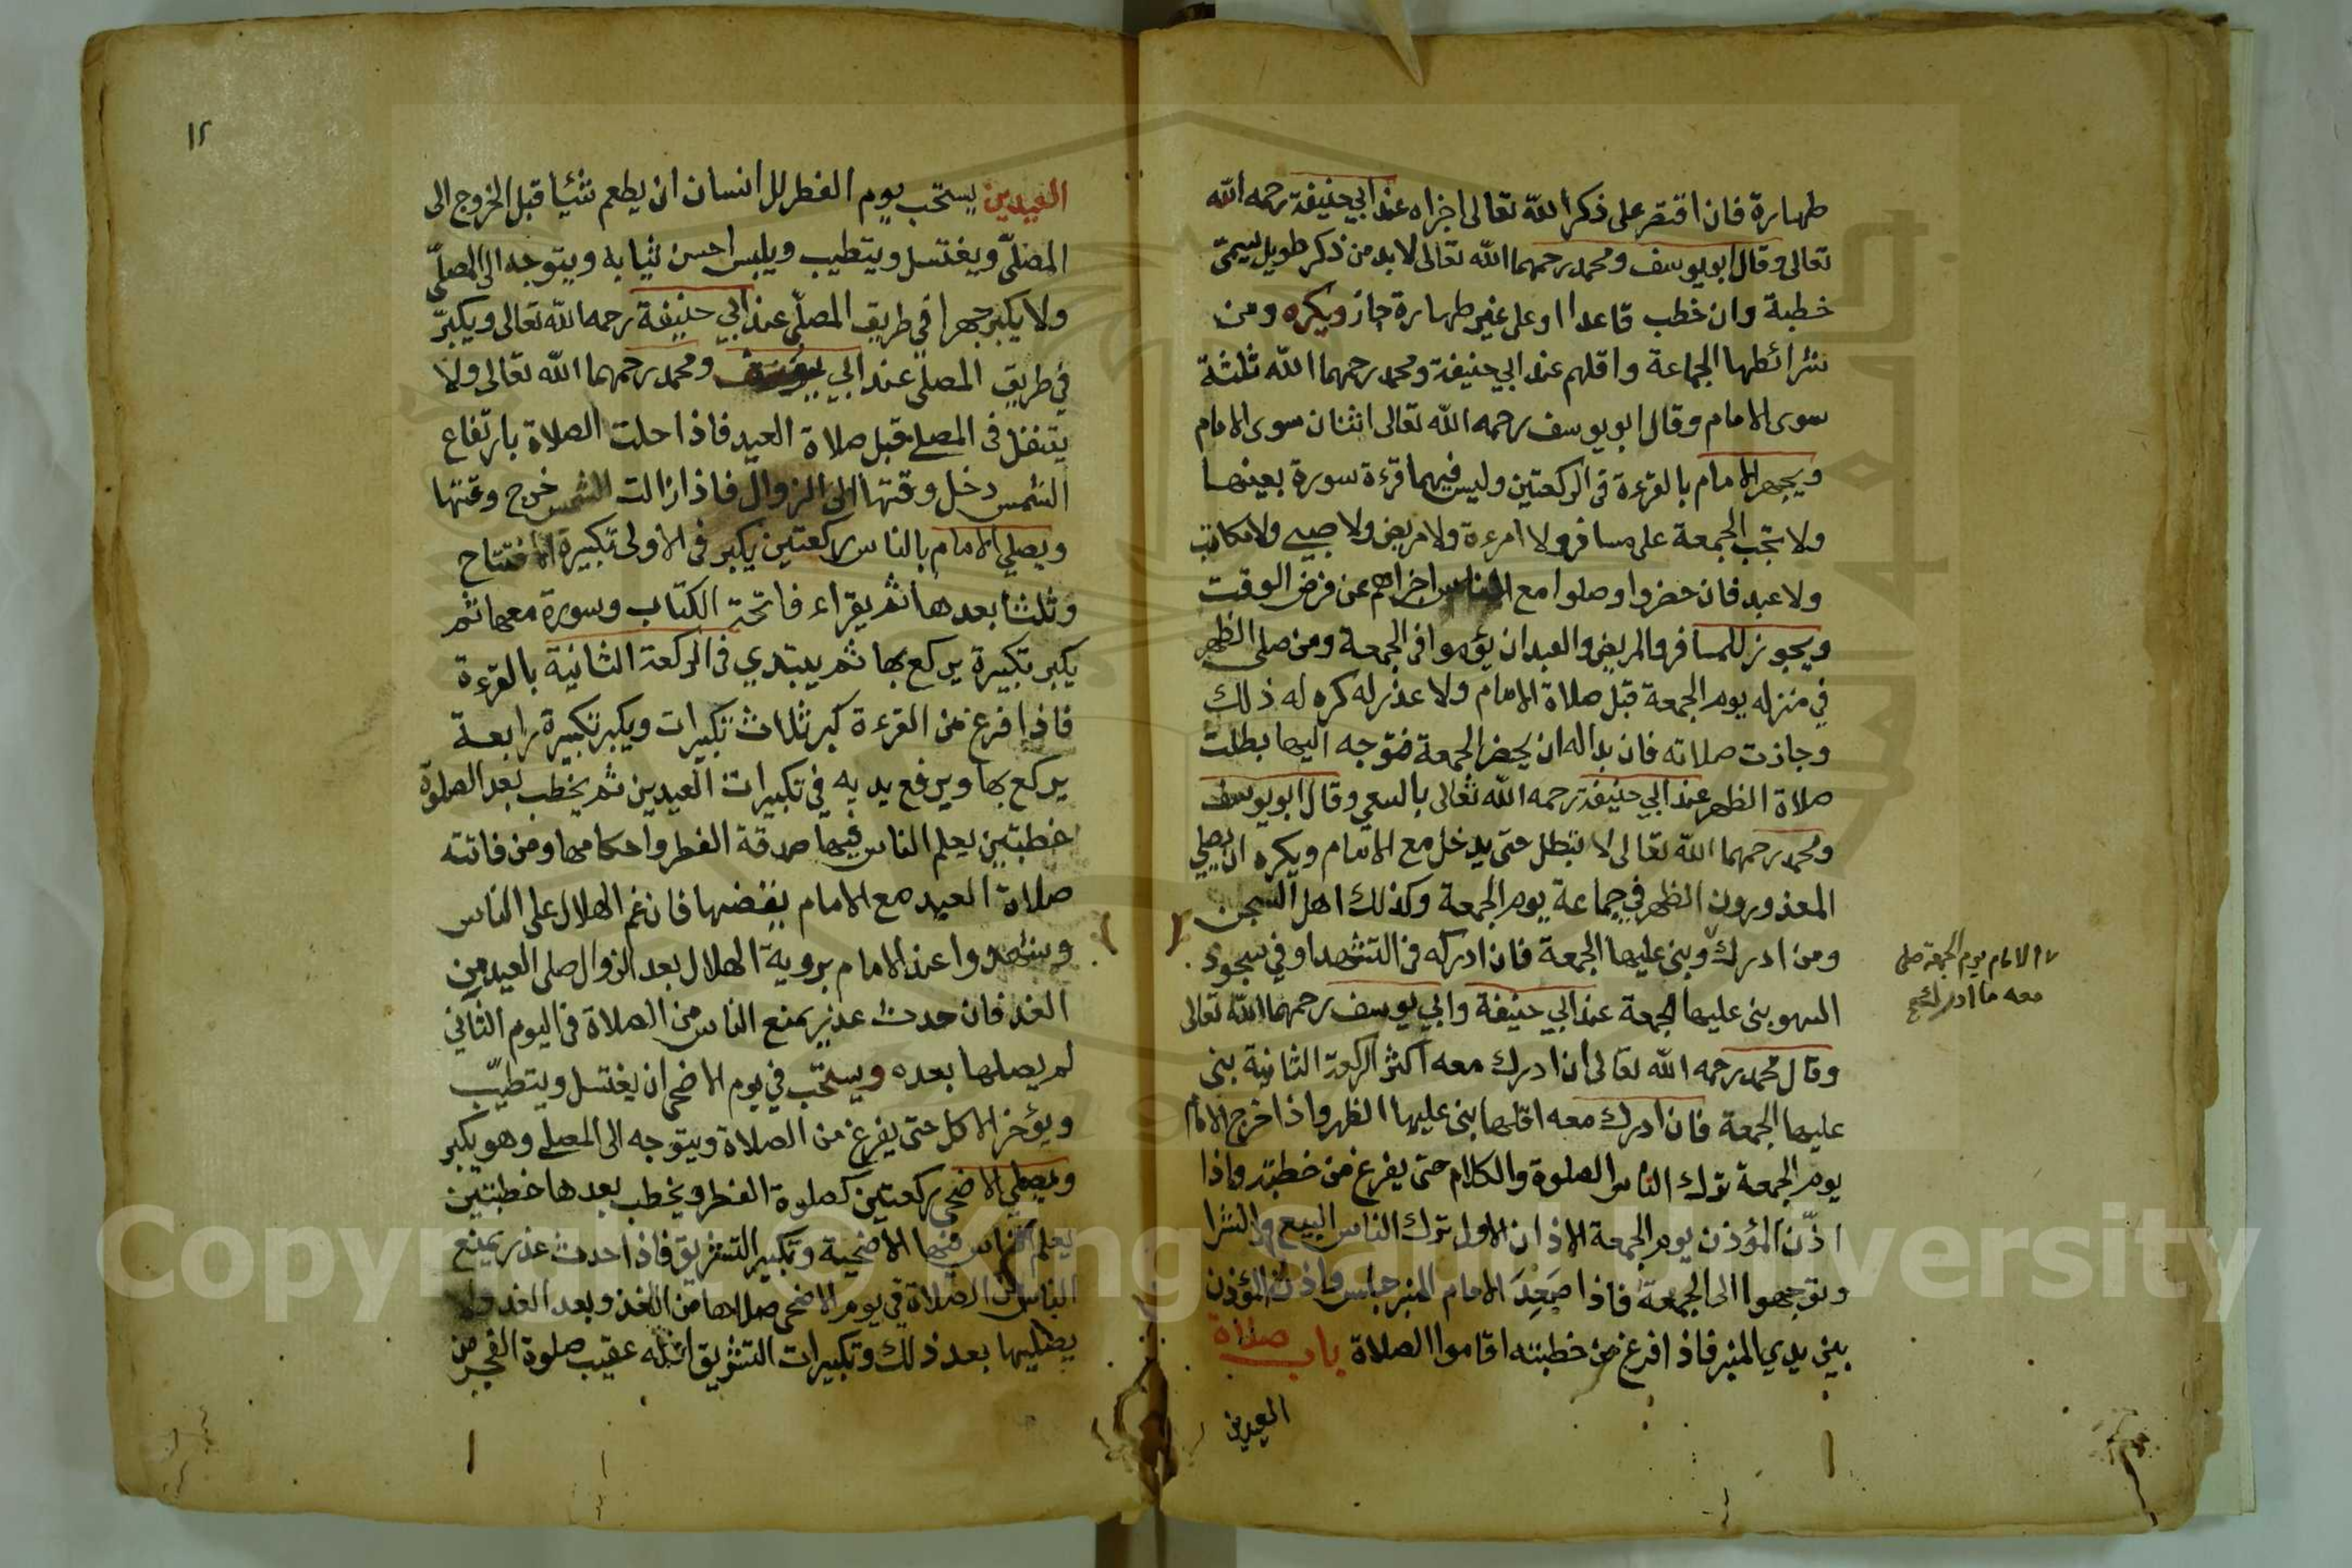 طهارة فان اقتصر على ذكر الله تعالى اجزاه عند ابي حنيفة رحمه الله
تعالى وقال ابو يوسف ومحمد رحمهما الله تعالى لا بد من ذكر طويل يسمى
خطبة وان خطب قاعدا او على غير طهارة جاز ويكره ومن
شرائطها الجماعة واقلهم عند ابي حنيفة ومحمد رحمهما الله ثلثة
سوى الامام وقال ابو يوسف رحمه الله تعالى اثنان سوى الامام
ويجهر الامام بالقرءة في الركعتين وليس فيهما قرءة سورة بعينها
ولا تجب الجمعة على مسافر ولا امرءة ولا مريض ولا صبي ولا مكاتب
ولا عبد فان حضروا وصلوا مع الناس اجزاهم عن فرض الوقت
ويجوز للمسافر والمريض والعبد ان يؤموا في الجمعة ومن صلى الظهر
في منزله يوم الجمعة قبل صلاة الامام ولا عذر له كره له ذلك
وجازت صلاته فان بداله ان يحضر الجمعة فتوجه اليها بطلت
صلاة الظهر عند ابي حنيفة رحمه الله تعالى بالسعي وقال ابو يوسف
ومحمد رحمهما الله تعالى لا تبطل حتى يدخل مع الامام ويكره ان يصلي
المعذورون الظهر في جماعة يوم الجمعة وكذلك اهل السجن
ومن ادرك وبنى عليها الجمعة فان ادركه في التشهد او في سجود
الامام يوم الجمعة صلى
معه ما ادرك صح
السهو بنى عليها الجمعة عند ابي حنيفة وابي يوسف رحمهما الله تعالى
وقال محمد رحمه الله تعالى ان ادرك معه اكثر الركعة الثانية بنى
عليها الجمعة فان ادرك معه اقلها بنى عليها الظهر واذا خرج الامام
يوم الجمعة ترك الناس الصلوة والكلام حتى يفرغ من خطبته واذا
اذّن المؤذن يوم الجمعة الاذان الاول ترك الناس البيع والشرا
وتوجهوا الى الجمعة فاذا صَعِدَ الامام المنبر جلس واذن المؤذن
بين يدي المنبر فاذا فرغ من خطبته اقاموا الصلاة باب صلاة
العيدين
١٢
العيدين يستحب يوم الفطر للانسان ان يطعم شيئا قبل الخروج الى
المصلّى ويغتسل ويتطيب ويلبس احسن ثيابه ويتوجه الى المصلّى
ولا يكبر جهرا في طريق المصلّى عند ابي حنيفة رحمه الله تعالى ويكبّر
في طريق المصلى عند ابي يوسف ومحمد رحمهما الله تعالى ولا
يتنفل في المصلى قبل صلاة العيد فاذا حلت الصلاة بارتفاع
الشمس دخل وقتها الى الزوال فاذا زالت الشمس خرج وقتها
ويصلي الامام بالناس ركعتين يكبر في الاولى تكبيرة الافتتاح
وثلثا بعدها ثم يقراء فاتحة الكتاب وسورة معها ثم
يكبر تكبيرة يركع بها ثم يبتدي في الركعة الثانية بالقرءة
فاذا فرغ من القرءة كبر ثلاث تكبيرات ويكبر تكبيرة رابعة
يركع بها ويرفع يديه في تكبيرات العيدين ثم يخطب بعد الصلوة
خطبتين يعلم الناس فيها صدقة الفطر واحكامها ومن فاتته
صلاة العيد مع الامام يقضها فان غم الهلال على الناس
وشهدوا عند الامام بروية الهلال بعد الزوال صلى العيد من
الغد فان حدث عذر يمنع الناس من الصلاة في اليوم الثاني
لم يصلها بعده ويستحب في يوم الاضحى ان يغتسل ويتطيّب
ويؤخر الاكل حتى يفرغ من الصلاة ويتوجه الى المصلى وهو يكبر
ويصلي الاضحى ركعتين كصلوة الفطر ويخطب بعدها خطبتين
يعلم الناس فيها الاضحية وتكبير التشريق فاذا حدث عذر يمنع
الناس من الصلاة في يوم الاضحى صلاها من الغد وبعد الغد ولا
يصليها بعد ذلك وتكبيرات التشريق اوله عقيب صلوة الفجر من
Copyright © King Saud University